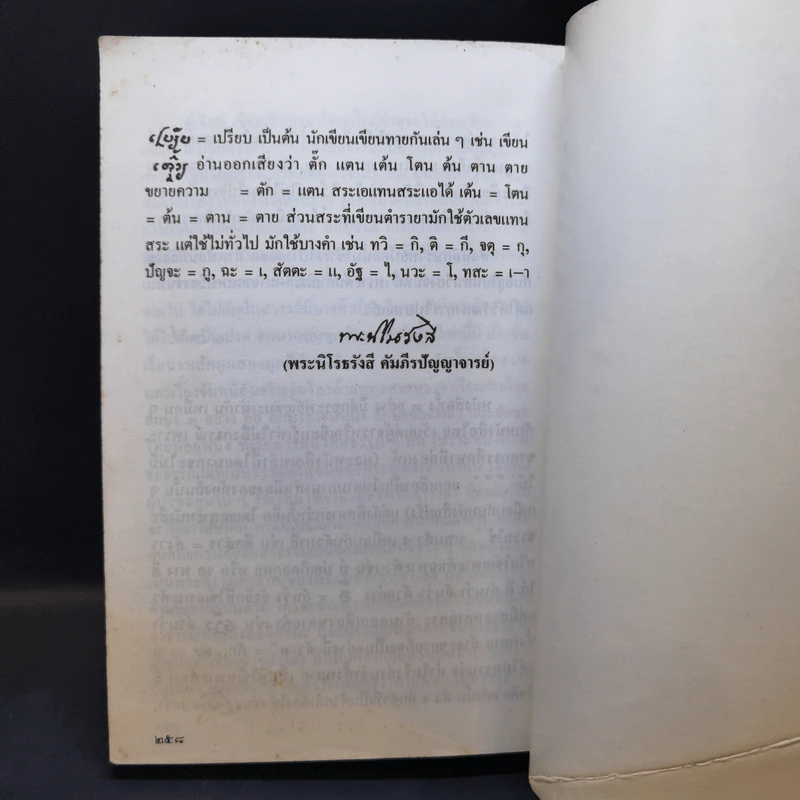 = เปรียบ เป็นต้น นักเขียนเขียนทายกันเล่น ๆ เช่น เขียน
อ่านออกเสียงว่า ตั๊ก แตน เต้น โตน ต้น ตาน ตาย
ขยายความ = ตัก = แตน สระเอแทนสระแอได้ เต้น = โตน
= ต้น = ตาน = ตาย ส่วนสระที่เขียนตำรายามักใช้ตัวเลขแทน
สระ แต่ใช้ไม่ทั่วไป มักใช้บางคำ เช่น ทวิ = กิ, ติ = กี, จตุ = กุ,
ปัญจะ = กู, ฉะ = เ, สัตตะ = แ, อัฐ = ไ, นวะ = โ, ทสะ = เ-า
(พระนิโรธรังสี คัมภีรปัญญาจารย์)
๒๕๘